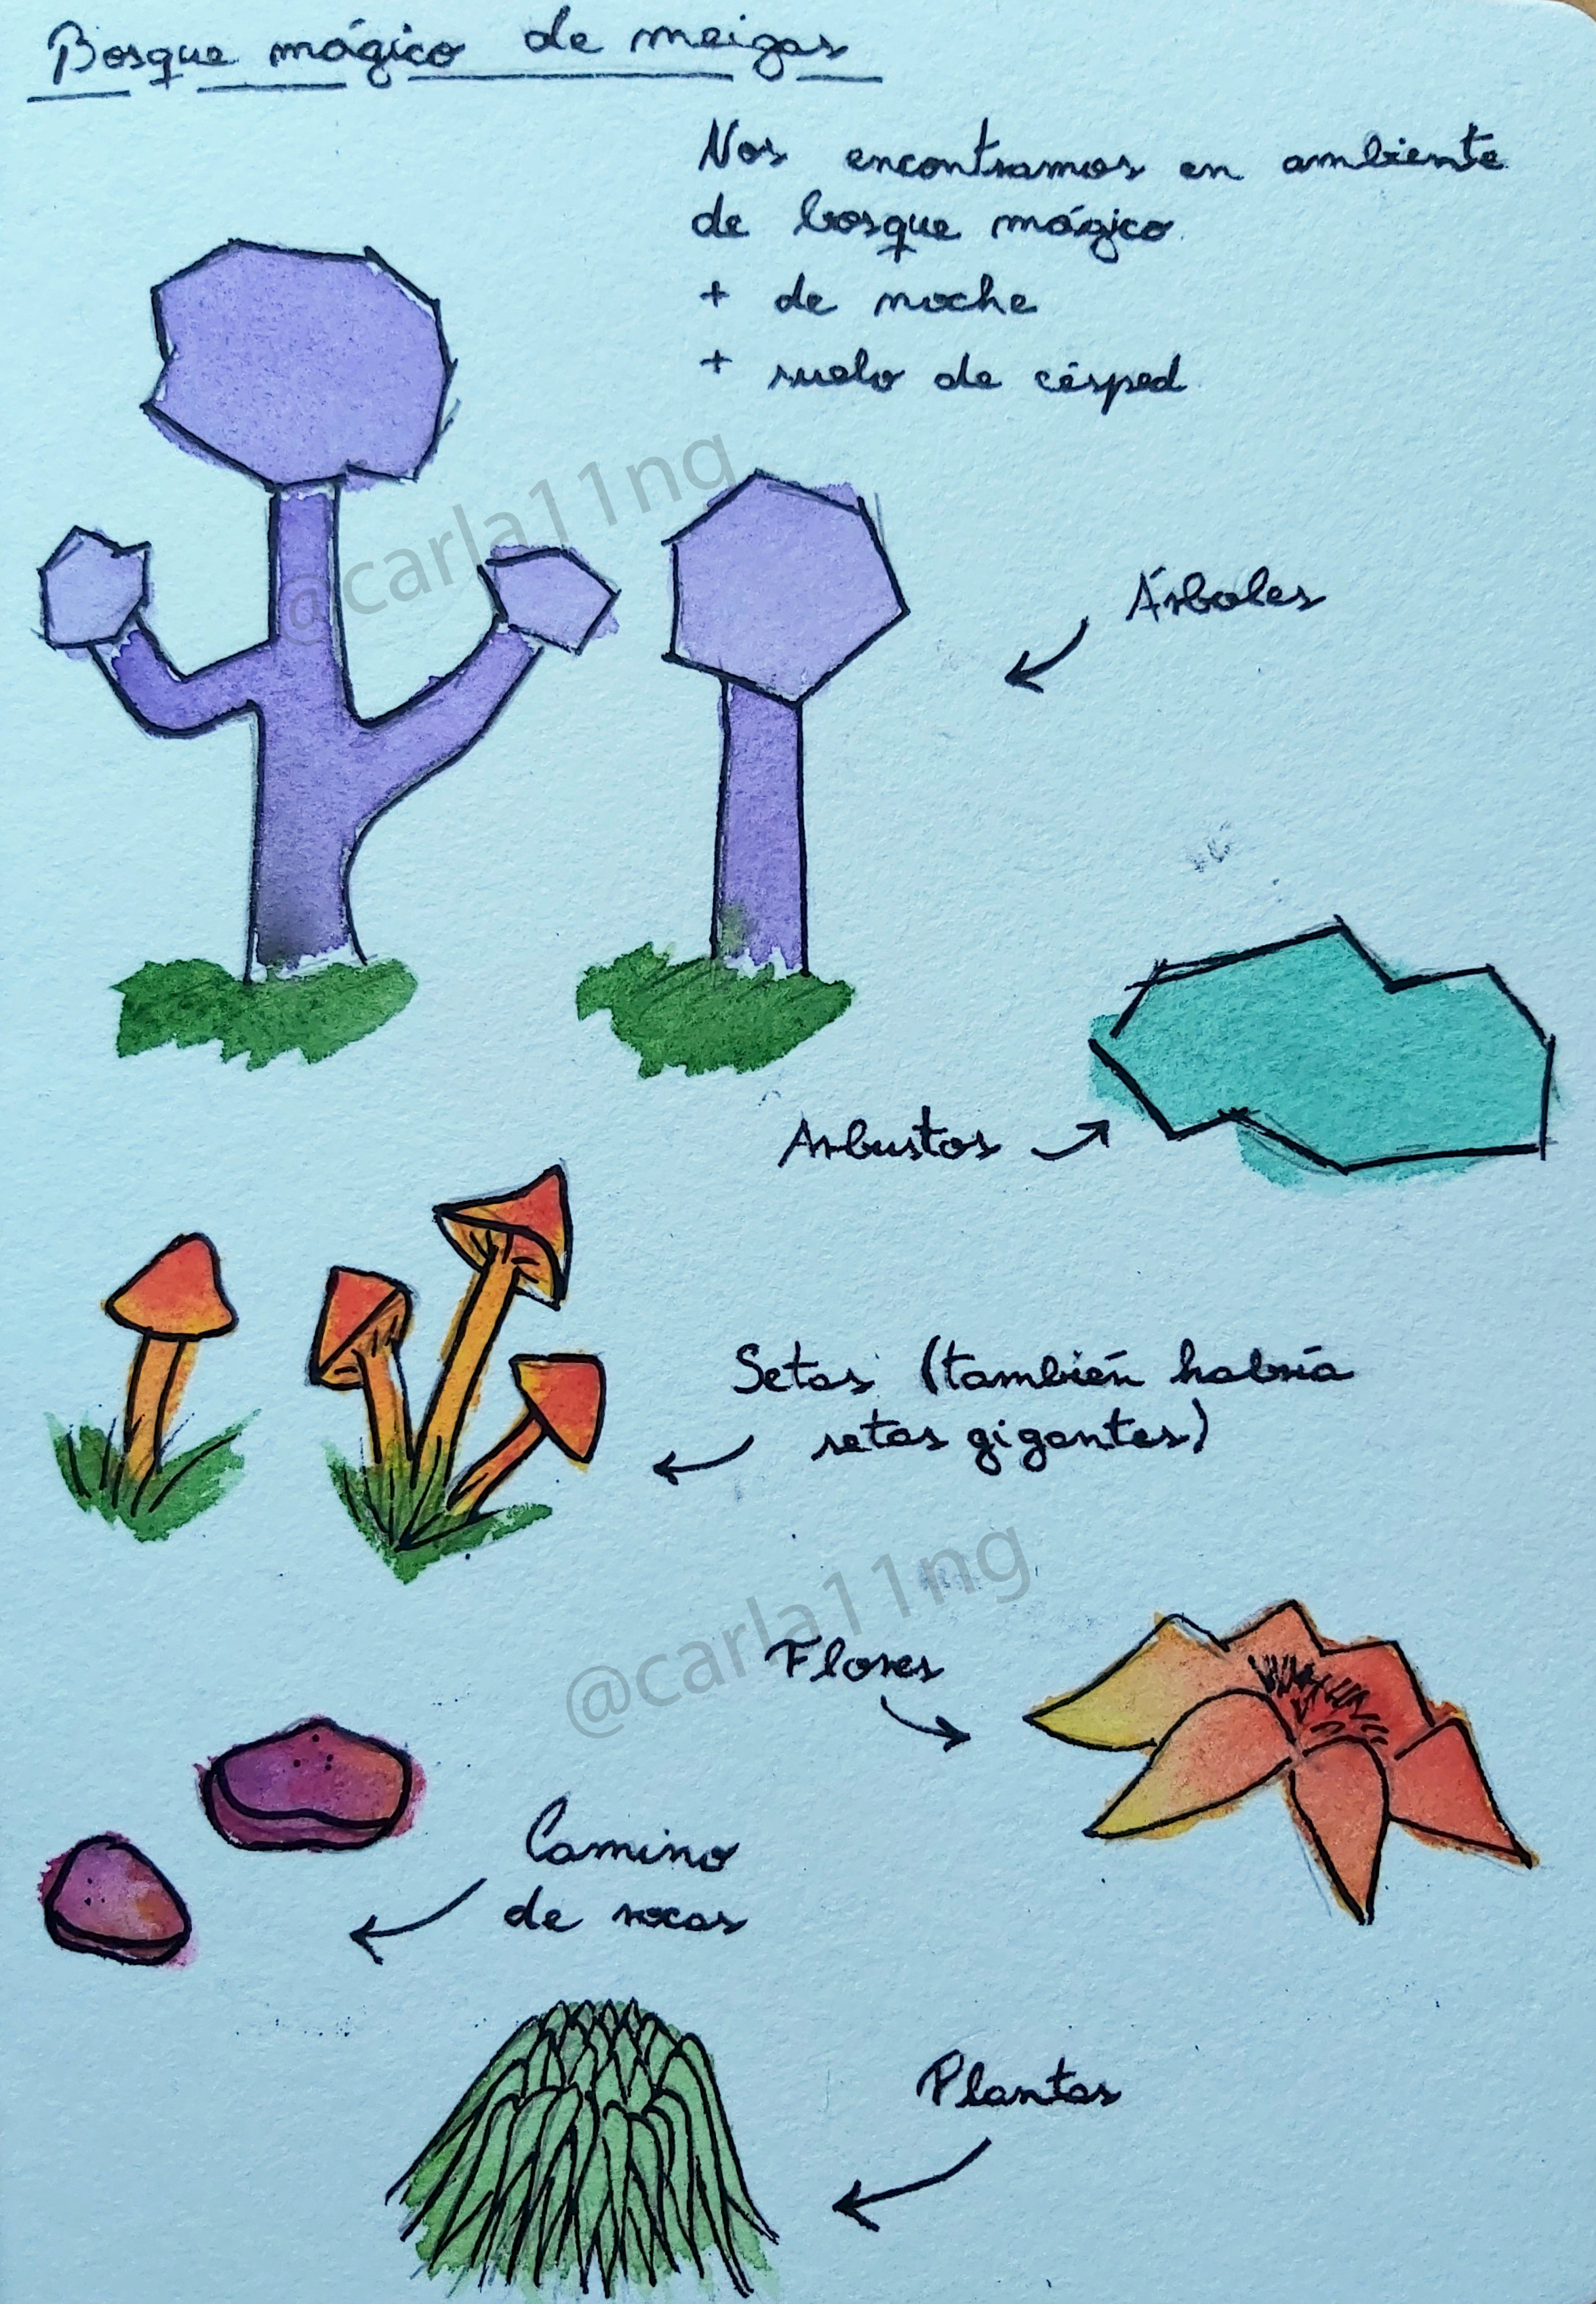 Bosque mágico de meigas
Nos encontramos en ambiente
de bosque mágico
+ de noche
+ suelo de césped
@carla11ng
Árboles
Arbustos
Setas (también habría
setas gigantes)
@carla11ng
Flores
Camino
de rocas
Plantas